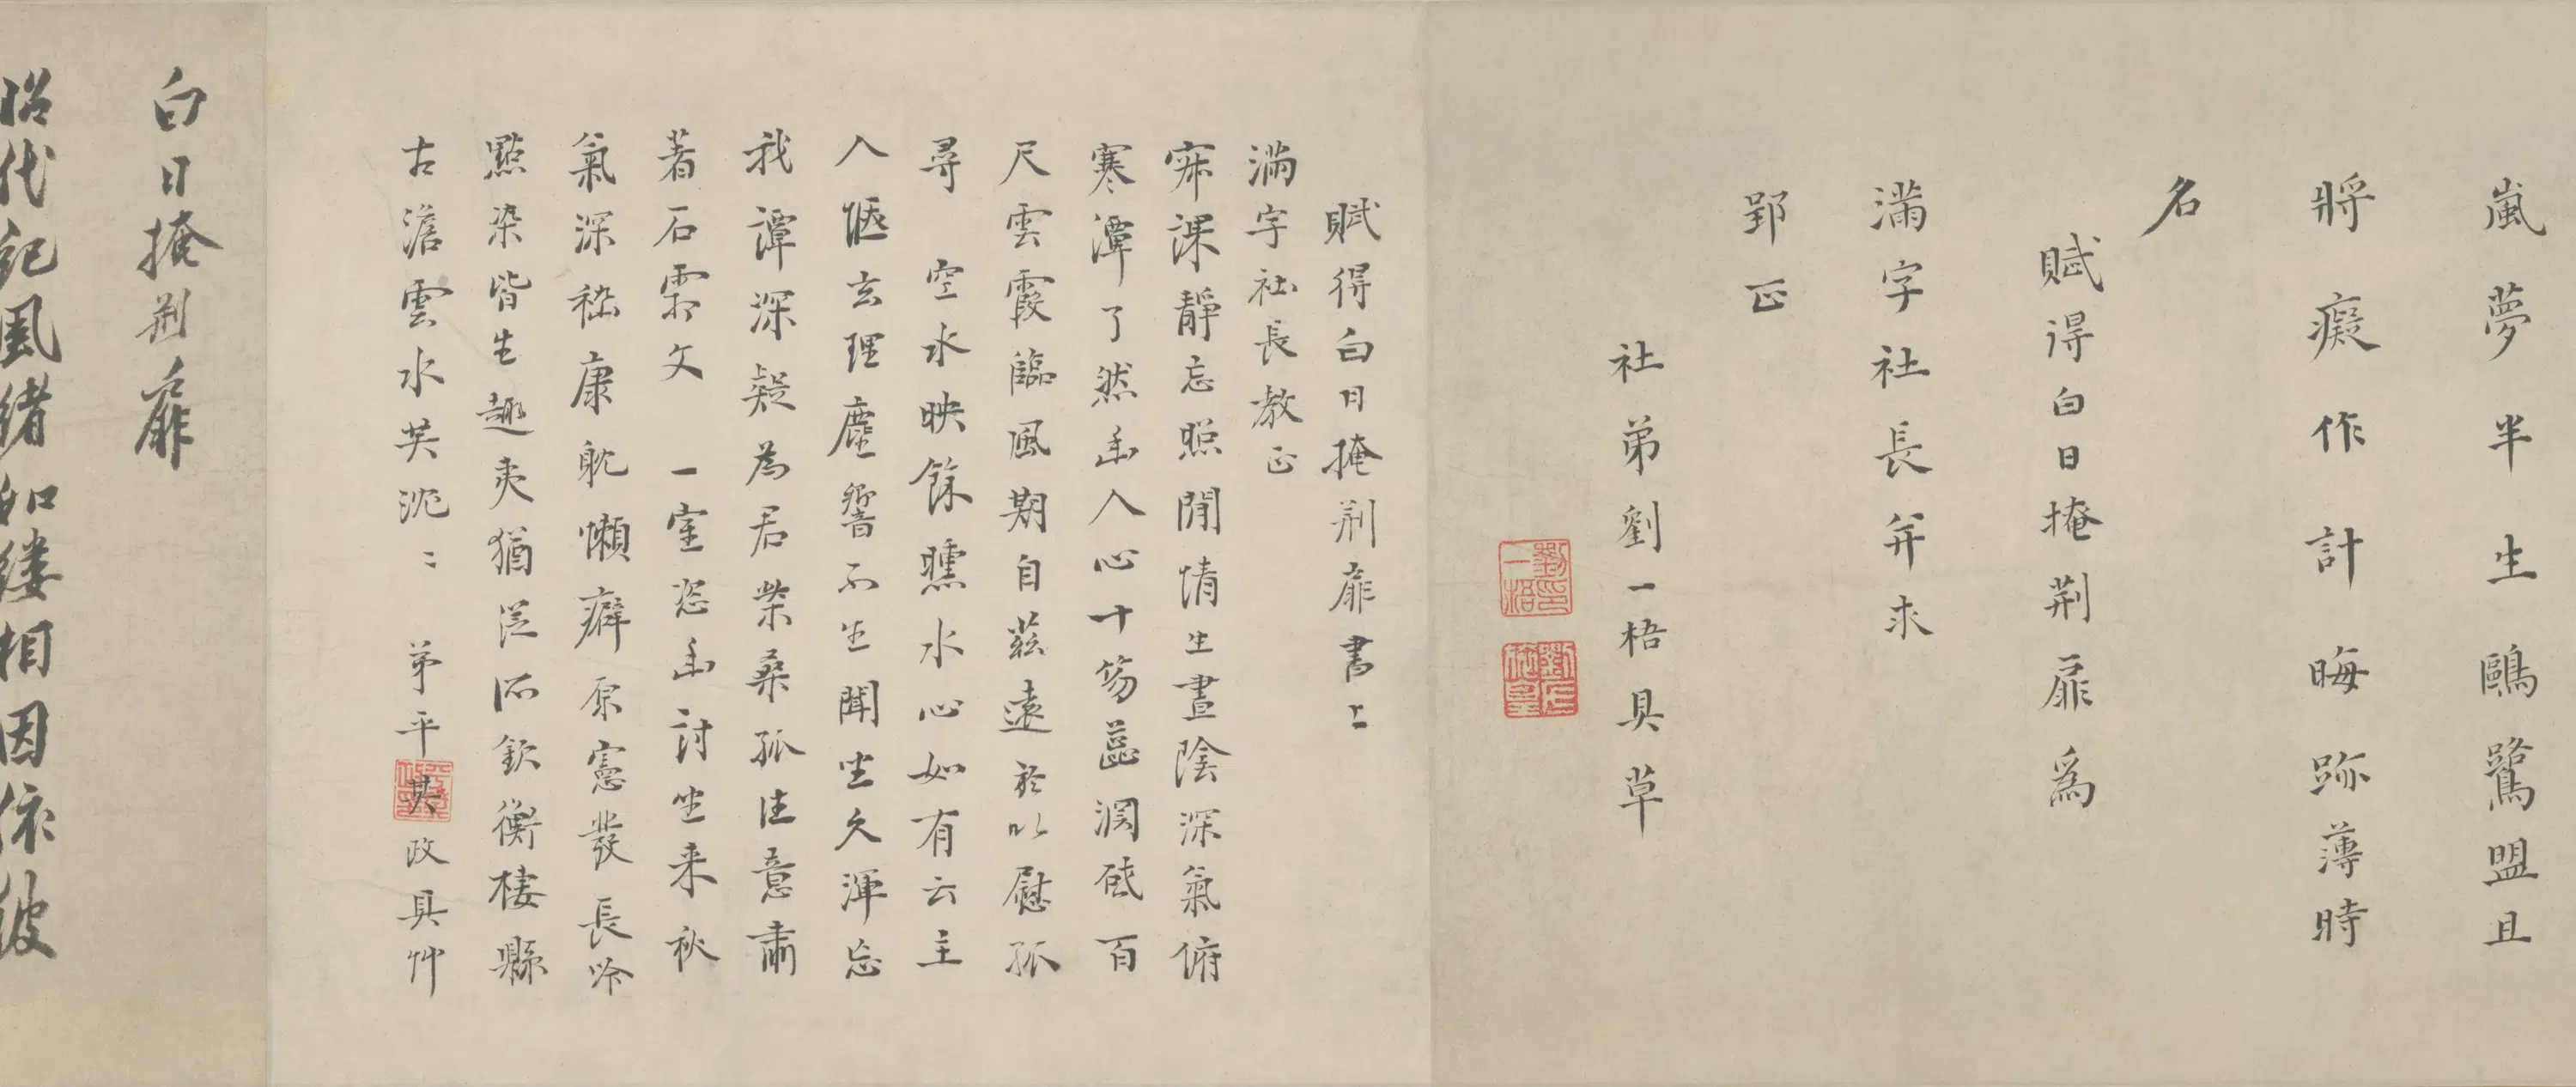 嵐夢半生鷗鷺盟且
將癡作計晦跡薄時
名
賦得白日掩荆扉爲
滿字社長并求
郢正
社弟劉一梧具草
賦得白日掩荆扉書上
滿字社長教正
寂課靜忘照閒情生晝陰深氣俯
寒潭了然幽入心十笏蕊淵砥百
尺雲霞臨風期自茲遠於以慰孤
尋 空水映餘曛水心如有云主
入愜玄理塵響不生聞坐久渾忘
我譚深疑為君柴桑孤往意肅
著石霛文 一室恣幽討坐来秋
氣深嵇康躭懶癖原憲發長吟
點染皆生趣夷猶從所欽衡棲縣
古澹雲水英沈〻 弟平 政具艸
白日掩荆扉
昭代紀風緒如縷相因依彼